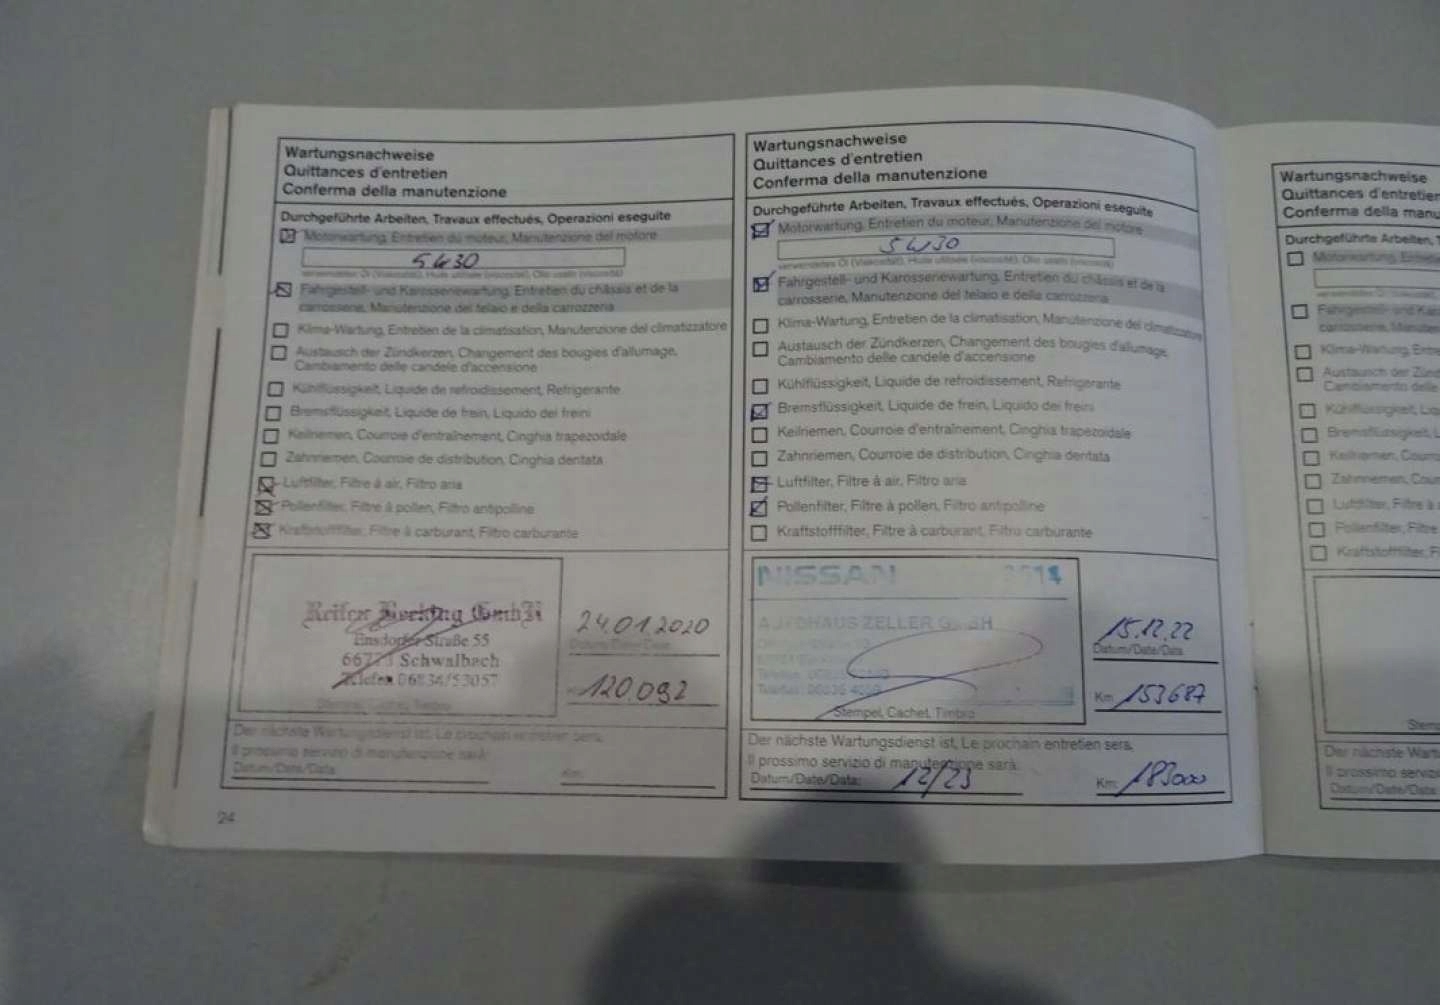 Wartungsnachweise
Quittances d'entretien
Conferma della manutenzione
Durchgeführte Arbeiten, Travaux effectués, Operazioni eseguite
Motorwartung, Entretien du moteur, Manutenzione del motore
5W30
verwendetes Öl (Viskosität), Huile utilisée (viscosité), Olio usato (viscosità)
Fahrgestell- und Karosseriewartung, Entretien du châssis et de la
carrosserie, Manutenzione del telaio e della carrozzeria
Klima-Wartung, Entretien de la climatisation, Manutenzione del climatizzatore
Austausch der Zündkerzen, Changement des bougies d'allumage,
Cambiamento delle candele d'accensione
Kühlflüssigkeit, Liquide de refroidissement, Refrigerante
Bremsflüssigkeit, Liquide de frein, Liquido dei freini
Keilriemen, Courroie d'entraînement, Cinghia trapezoidale
Zahnriemen, Courroie de distribution, Cinghia dentata
Luftfilter, Filtre à air, Filtro aria
Pollenfilter, Filtre à pollen, Filtro antipolline
Kraftstofffilter, Filtre à carburant, Filtro carburante
Reifen Becking GmbH
Ensdorfer Straße 55
66773 Schwalbach
Telefon 06834/53057
Stempel, Cachet, Timbro
24.01.2020
Datum/Date/Data
Km 120.092
Der nächste Wartungsdienst ist, Le prochain entretien sera,
Il prossimo servizio di manutenzione sarà:
Datum/Date/Data:
Km:
24
Wartungsnachweise
Quittances d'entretien
Conferma della manutenzione
Durchgeführte Arbeiten, Travaux effectués, Operazioni eseguite
Motorwartung, Entretien du moteur, Manutenzione del motore
5W30
verwendetes Öl (Viskosität), Huile utilisée (viscosité), Olio usato (viscosità)
Fahrgestell- und Karosseriewartung, Entretien du châssis et de la
carrosserie, Manutenzione del telaio e della carrozzeria
Klima-Wartung, Entretien de la climatisation, Manutenzione del climatizzatore
Austausch der Zündkerzen, Changement des bougies d'allumage,
Cambiamento delle candele d'accensione
Kühlflüssigkeit, Liquide de refroidissement, Refrigerante
Bremsflüssigkeit, Liquide de frein, Liquido dei freini
Keilriemen, Courroie d'entraînement, Cinghia trapezoidale
Zahnriemen, Courroie de distribution, Cinghia dentata
Luftfilter, Filtre à air, Filtro aria
Pollenfilter, Filtre à pollen, Filtro antipolline
Kraftstofffilter, Filtre à carburant, Filtro carburante
NISSAN
AUTOHAUS ZELLER GmbH
Stempel, Cachet, Timbro
15.12.22
Datum/Date/Data
Km 153687
Der nächste Wartungsdienst ist, Le prochain entretien sera,
Il prossimo servizio di manutenzione sarà:
Datum/Date/Data: 12/23
Km: 183000
Wartungsnachweise
Quittances d'entretien
Conferma della manu
Durchgeführte Arbeiten, T
Motorwartung, Entretie
Klima-Wartung, Entre
Austausch der Zünd
Cambiamento delle
Kühlflüssigkeit, Liq
Bremsflüssigkeit, L
Keilriemen, Courro
Zahnriemen, Cour
Luftfilter, Filtre à
Pollenfilter, Filtre
Kraftstofffilter, F
Stem
Der nächste Wart
Il prossimo servizi
Datum/Date/Data